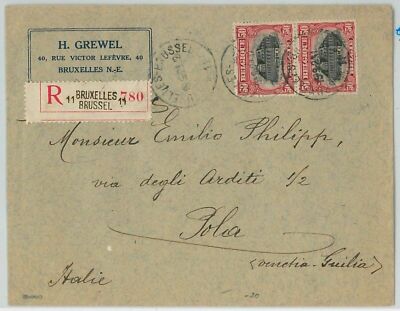 H. GREWEL
40, RUE VICTOR LEFÈVRE, 40
BRUXELLES N.-E.
R 11 BRUXELLES 11 780
BRUSSEL
50 BELGIQUE 50
50 BELGIQUE 50
Monsieur Emilio Philipp,
via degli Arditi 1/2
Pola
(Venetia-Giulia)
Italie